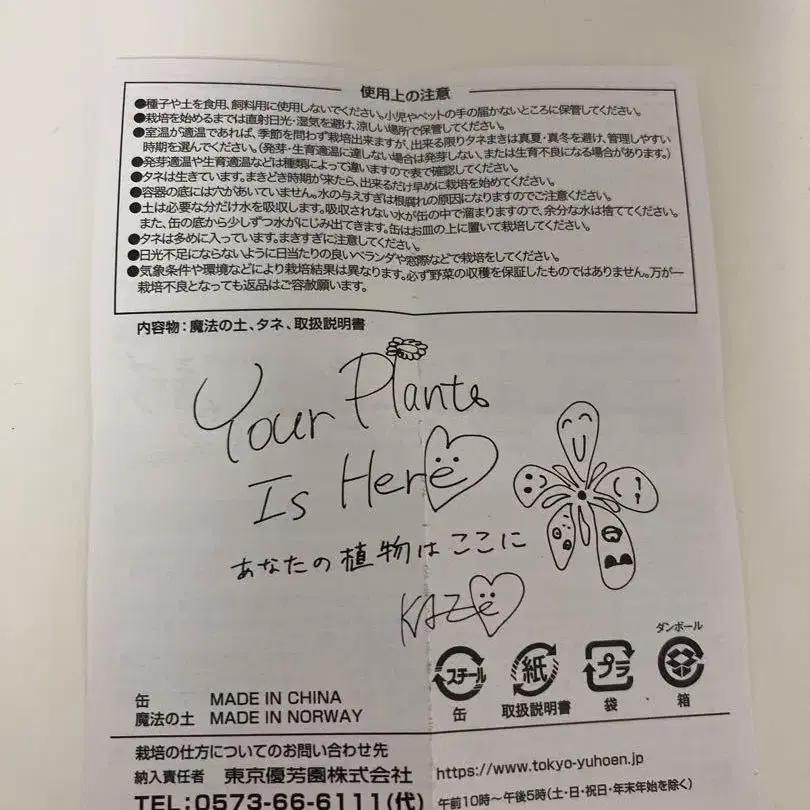 使用上の注意
●種子や土を食用、飼料用に使用しないでください。小児やペットの手の届かないところに保管してください。
●栽培を始めるまでは直射日光・湿気を避け、涼しい場所で保管してください。
●室温が適温であれば、季節を問わず栽培出来ますが、出来る限りタネまきは真夏・真冬を避け、管理しやすい
時期を選んでください。(発芽・生育適温に達しない場合は発芽しない、または生育不良になる場合があります。)
●発芽適温や生育適温などは種類によって違いますので表で確認してください。
●タネは生きています。まきどき時期が来たら、出来るだけ早めに栽培を始めてください。
●容器の底には穴があいていません。水の与えすぎは根腐れの原因になりますのでご注意ください。
●土は必要な分だけ水を吸収します。吸収されない水が缶の中で溜まりますので、余分な水は捨ててください。
また、缶の底から少しずつ水がにじみ出てきます。缶はお皿の上に置いて栽培してください。
●タネは多めに入っています。まきすぎに注意してください。
●日光不足にならないように日当たりの良いベランダや窓際などで栽培をしてください。
●気象条件や環境などにより栽培結果は異なります。必ず野菜の収穫を保証したものではありません。万が一
栽培不良となっても返品はご容赦願います。
内容物：魔法の土、タネ、取扱説明書
Your Plants
Is Here
あなたの植物はここに
KAZe
ダンボール
スチール 紙 プラ
缶 取扱説明書 袋 箱
缶 MADE IN CHINA
魔法の土 MADE IN NORWAY
栽培の仕方についてのお問い合わせ先
納入責任者 東京優芳園株式会社 https://www.tokyo-yuhoen.jp
TEL:0573-66-6111(代) 午前10時〜午後5時(土・日・祝日・年末年始を除く)